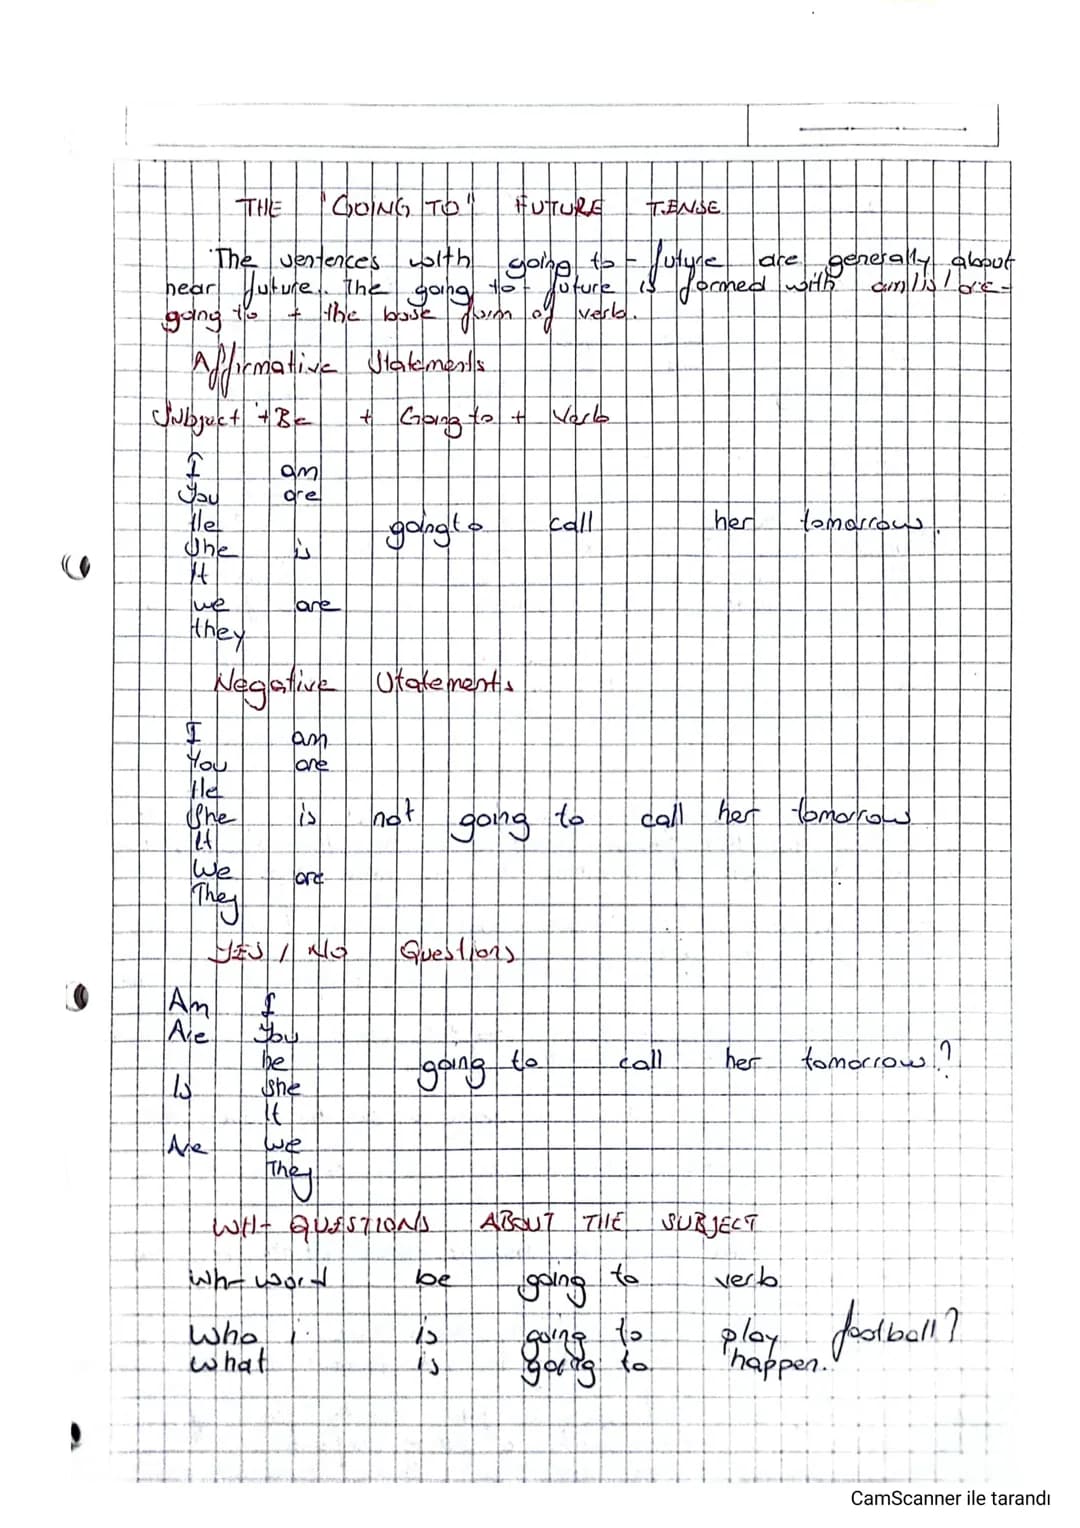 THE "GOING TO" FUTURE TENSE
The sentences with going to - future are generally about
near future. The going to - future is formed with am/is/are-
going to + the base form of verb.
Affirmative Statements
Subject + Be + Going to + Verb
I am
You are
He
going to call her tomorrow.
She is
It
we are
they
Negative Statements
I am
You are
He
She is not going to call her tomorrow
It
We are
They
YES / NO Questions
Am I
Are You
he going to call her tomorrow?
Is she
It
Are we
They
WH- QUESTIONS ABOUT THE SUBJECT
Wh- word be going to verb
Who is going to play football?
what is going to happen.
CamScanner ile tarandı